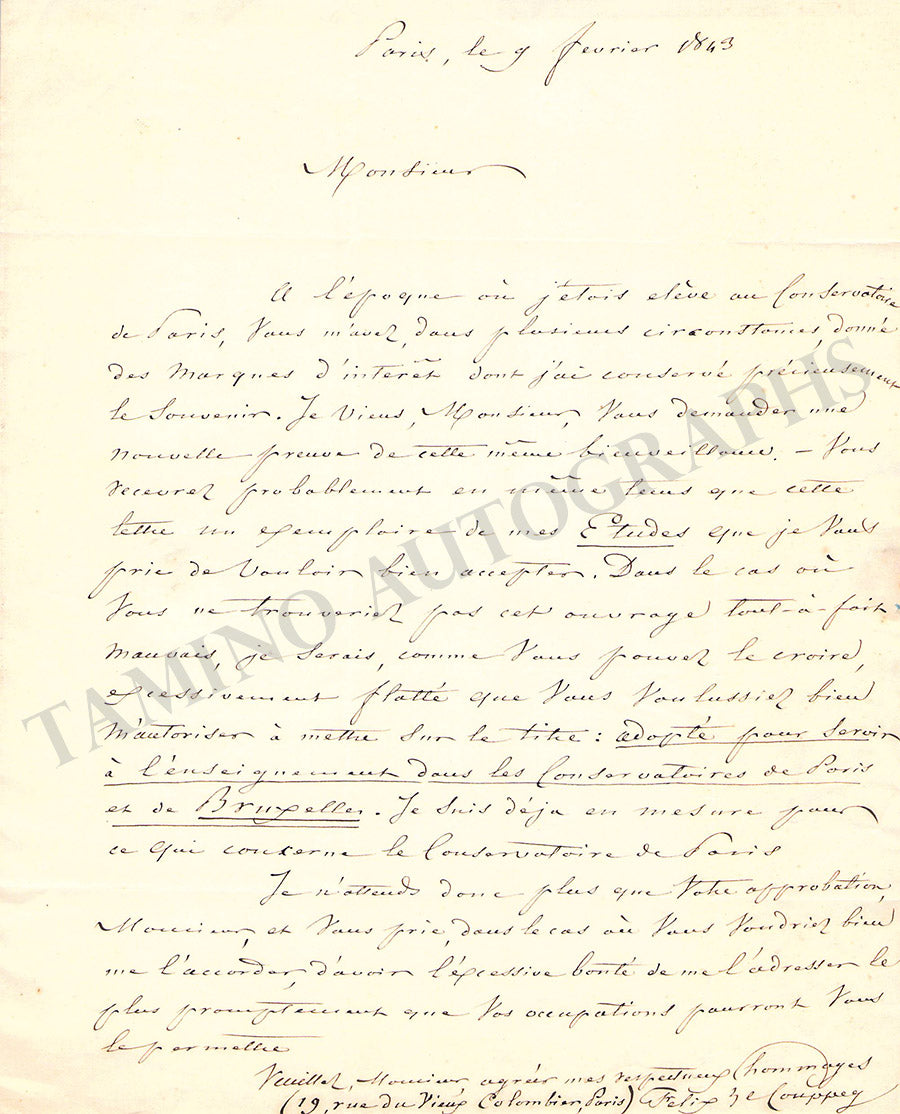 Paris, le 9 fevrier 1843
Monsieur
A l'époque où j'étois elève au Conservatoire
de Paris, Vous m'avez, dans plusieurs circonstances, donné
des marques d'intérêt dont j'ai conservé précieusement
le Souvenir. Je viens, Monsieur, Vous demander une
nouvelle preuve de cette même bienveillance. – Vous
recevrez probablement en même tems que cette
lettre un exemplaire de mes Etudes que je Vous
prie de Vouloir bien accepter. Dans le cas où
Vous ne trouveriez pas cet ouvrage tout-à-fait
mauvais, je Serais, comme Vous pouvez le croire,
excessivement flatté que Vous Voulussiez bien
m'autoriser à mettre Sur le titre : adopté pour Servir
à l'enseignement dans les Conservatoires de Paris
et de Bruxelles. Je Suis déja en mesure pour
ce qui concerne le Conservatoire de Paris
Je n'attends donc plus que Votre approbation,
Monsieur, et Vous prie, dans le cas où Vous Voudriez bien
me l'accorder, d'avoir l'excessive bonté de me l'adresser le
plus promptement que Vos occupations pourront Vous
le permettre
Veuillez, Monsieur, agréer mes respectueux hommages
(19, rue du Vieux Colombier, Paris) Félix Le Couppey
TAMINO AUTOGRAPHS